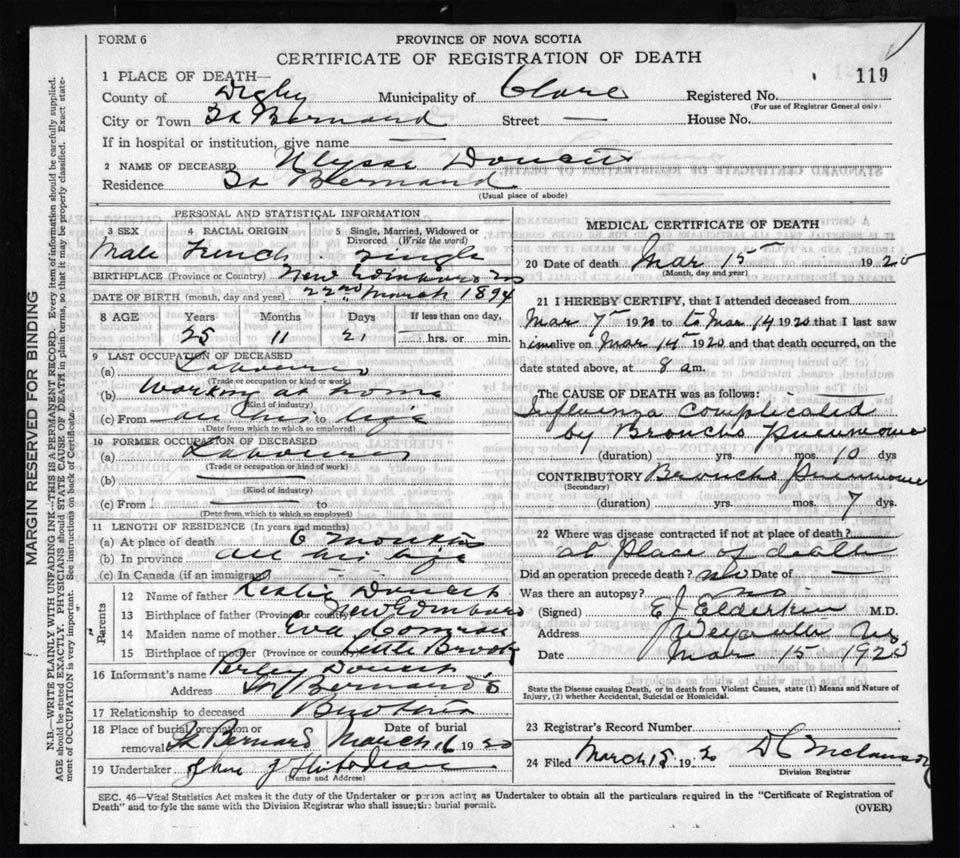 FORM 6
PROVINCE OF NOVA SCOTIA
CERTIFICATE OF REGISTRATION OF DEATH
119
1 PLACE OF DEATH—
County of Digby Municipality of Clare Registered No.
(For use of Registrar General only)
City or Town St Bernard Street — House No.
If in hospital or institution, give name —
2 NAME OF DECEASED Ulysse Doucet
Residence St Bernard
(Usual place of abode)
PERSONAL AND STATISTICAL INFORMATION
3 SEX 4 RACIAL ORIGIN Single, Married, Widowed or Divorced (Write the word)
Male French single
BIRTHPLACE (Province or Country) New Edinburg NS
DATE OF BIRTH (month, day and year) 22nd March 1894
8 AGE Years Months Days If less than one day,
25 11 21 — hrs. or — min.
9 LAST OCCUPATION OF DECEASED
(a) Labourer
(Trade or occupation or kind or work)
(b) Working at home
(Kind of industry)
(c) From all his to life
(Date from which to which so employed)
10 FORMER OCCUPATION OF DECEASED
(a) Labourer
(Trade or occupation or kind of work)
(b) —
(Kind of industry)
(c) From — to
(Date from which to which so employed)
11 LENGTH OF RESIDENCE (In years and months)
(a) At place of death 6 months
(b) In province all his life
(c) In Canada (if an immigrant)
Parents
12 Name of father Leslie Doucet
13 Birthplace of father (Province or country) New Edinburg
14 Maiden name of mother Eva
15 Birthplace of mother (Province or country) Little Brook
16 Informant's name Doucet
Address St Bernard's
17 Relationship to deceased Brother
18 Place of burial, cremation or removal St Bernard Date of burial March 16 1920
19 Undertaker
(Name and Address)
MEDICAL CERTIFICATE OF DEATH
20 Date of death Mar 15 1920
(Month, day and year)
21 I HEREBY CERTIFY, that I attended deceased from
Mar 7 1920 to Mar 14 1920 that I last saw
him alive on Mar 14 1920 and that death occurred, on the
date stated above, at 8 am.
The CAUSE OF DEATH was as follows:
Influenza complicated
by Broncho Pneumonia
(duration) yrs. mos. 10 dys
CONTRIBUTORY Broncho Pneumonia
(Secondary)
(duration) yrs. mos. 7 dys.
22 Where was disease contracted if not at place of death?
at place of death
Did an operation precede death? no Date of —
Was there an autopsy? no
(Signed) E J Elderkin M.D.
Address Weymouth NS
Date Mar 15 1920
State the Disease causing Death, or in death from Violent Causes, state (1) Means and Nature of
Injury, (2) whether Accidental, Suicidal or Homicidal.
23 Registrar's Record Number
24 Filed March 15 1920
Division Registrar
SEC. 46—Vital Statistics Act makes it the duty of the Undertaker or person acting as Undertaker to obtain all the particulars required in the "Certificate of Registration of
Death" and to fyle the same with the Division Registrar who shall issue the burial permit.
(OVER)
MARGIN RESERVED FOR BINDING
N.B.—WRITE PLAINLY WITH UNFADING INK—THIS IS A PERMANENT RECORD. Every item of information should be carefully supplied.
AGE should be stated EXACTLY. PHYSICIANS should STATE CAUSE OF DEATH in plain terms, so that it may be properly classified. Exact statement of OCCUPATION is very important. See instructions on back of Certificate.